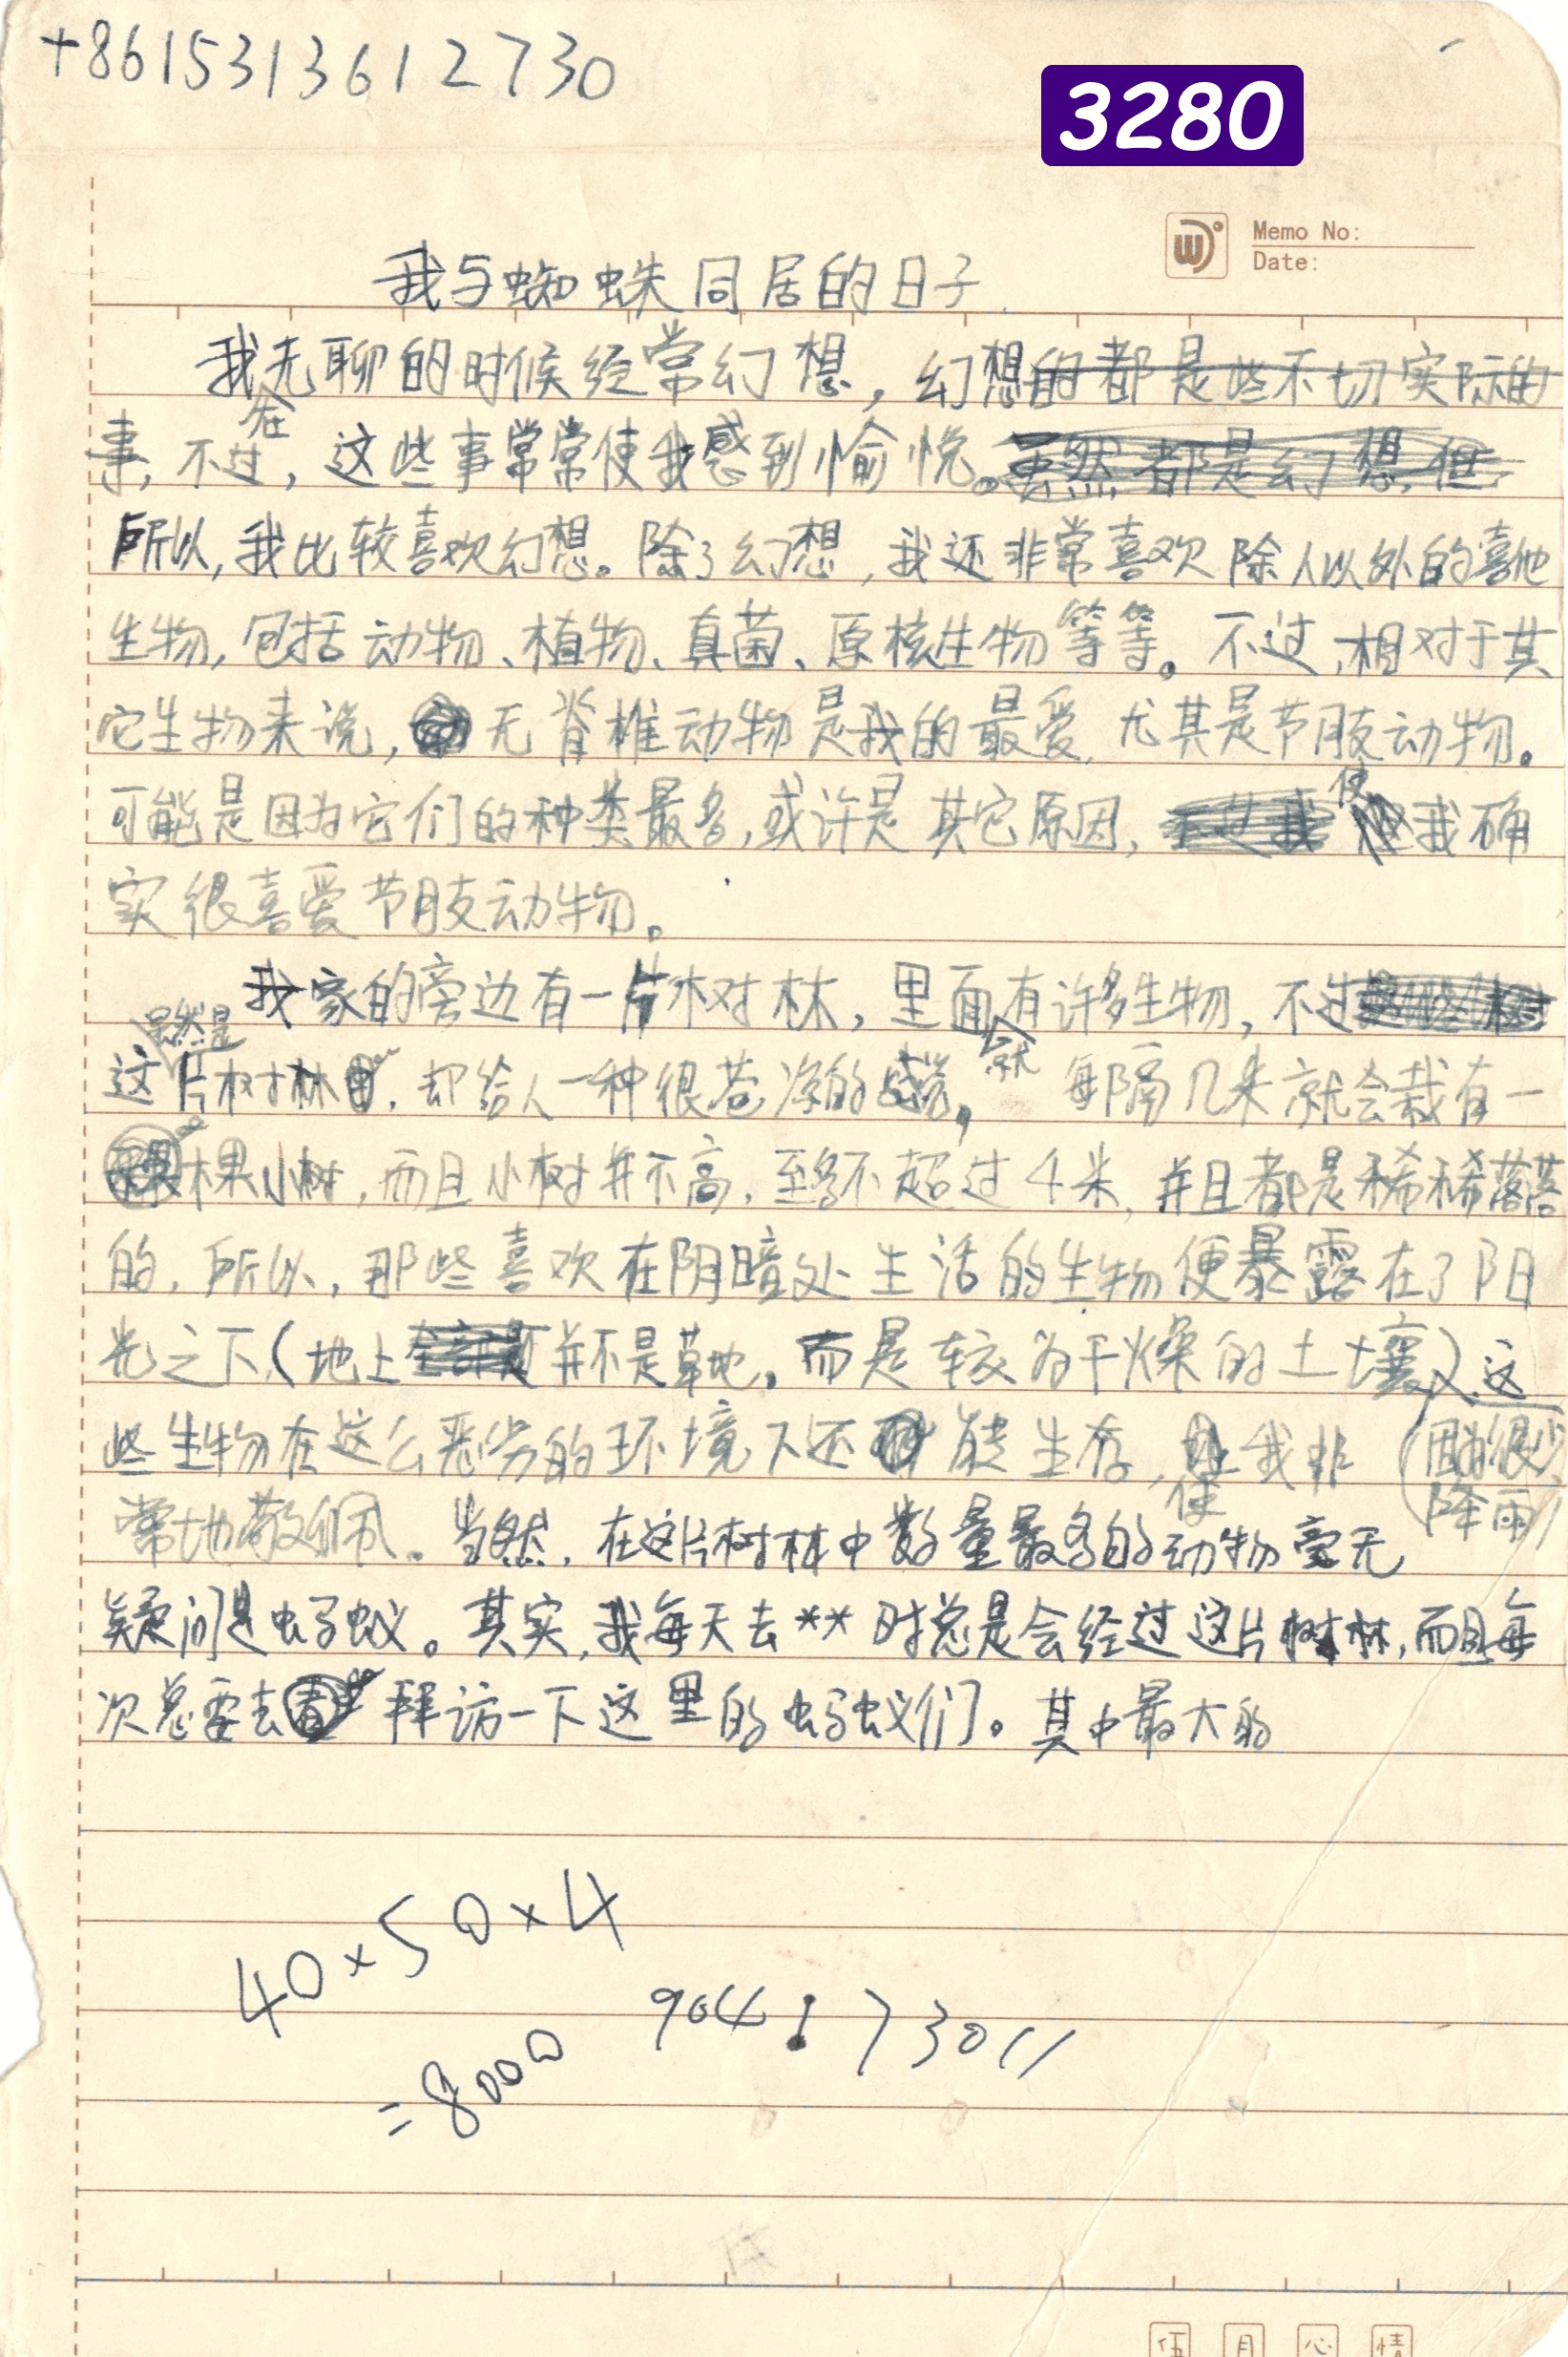 +8615313612730
3280
Memo No:
Date:
我与蜘蛛同居的日子
我无聊的时候经常幻想，幻想的都是些不切实际的
事，不过，这些事常常使我感到愉悦。虽然都是幻想，但
所以，我比较喜欢幻想。除了幻想，我还非常喜欢除人以外的其他
生物，包括动物、植物、真菌、原核生物等等。不过，相对于其
它生物来说，无脊椎动物是我的最爱，尤其是节肢动物。
使
可能是因为它们的种类最多，或许是其它原因，我确
实很喜爱节肢动物。
我家的旁边有一片树林，里面有许多生物，不过
虽然是
这片树林，却给人一种很苍凉的感觉，每隔几米就会栽有一
棵小树，而且小树并不高，至多不超过4米，并且都是稀稀落落
的，所以，那些喜欢在阴暗处生活的生物便暴露在了阳
光之下（地上并不是草地，而是较为干燥的土壤）。这
些生物在这么恶劣的环境下还能生存，使我非（因为很少
降雨）
常地敬佩。当然，在这片树林中数量最多的动物毫无
疑问是蚂蚁。其实，我每天去**时总是会经过这片树林，而且每
次总要去拜访一下这里的蚂蚁们。其中最大的
40×50×4
=8000
904
73011
伍月心情